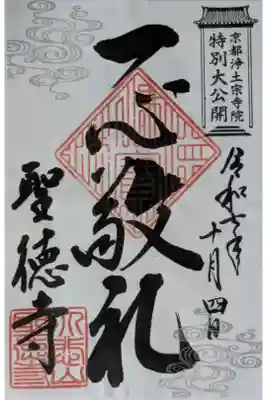 京都浄土宗寺院
特別大公開
令和 年
十月四日
一心敬礼
聖徳寺